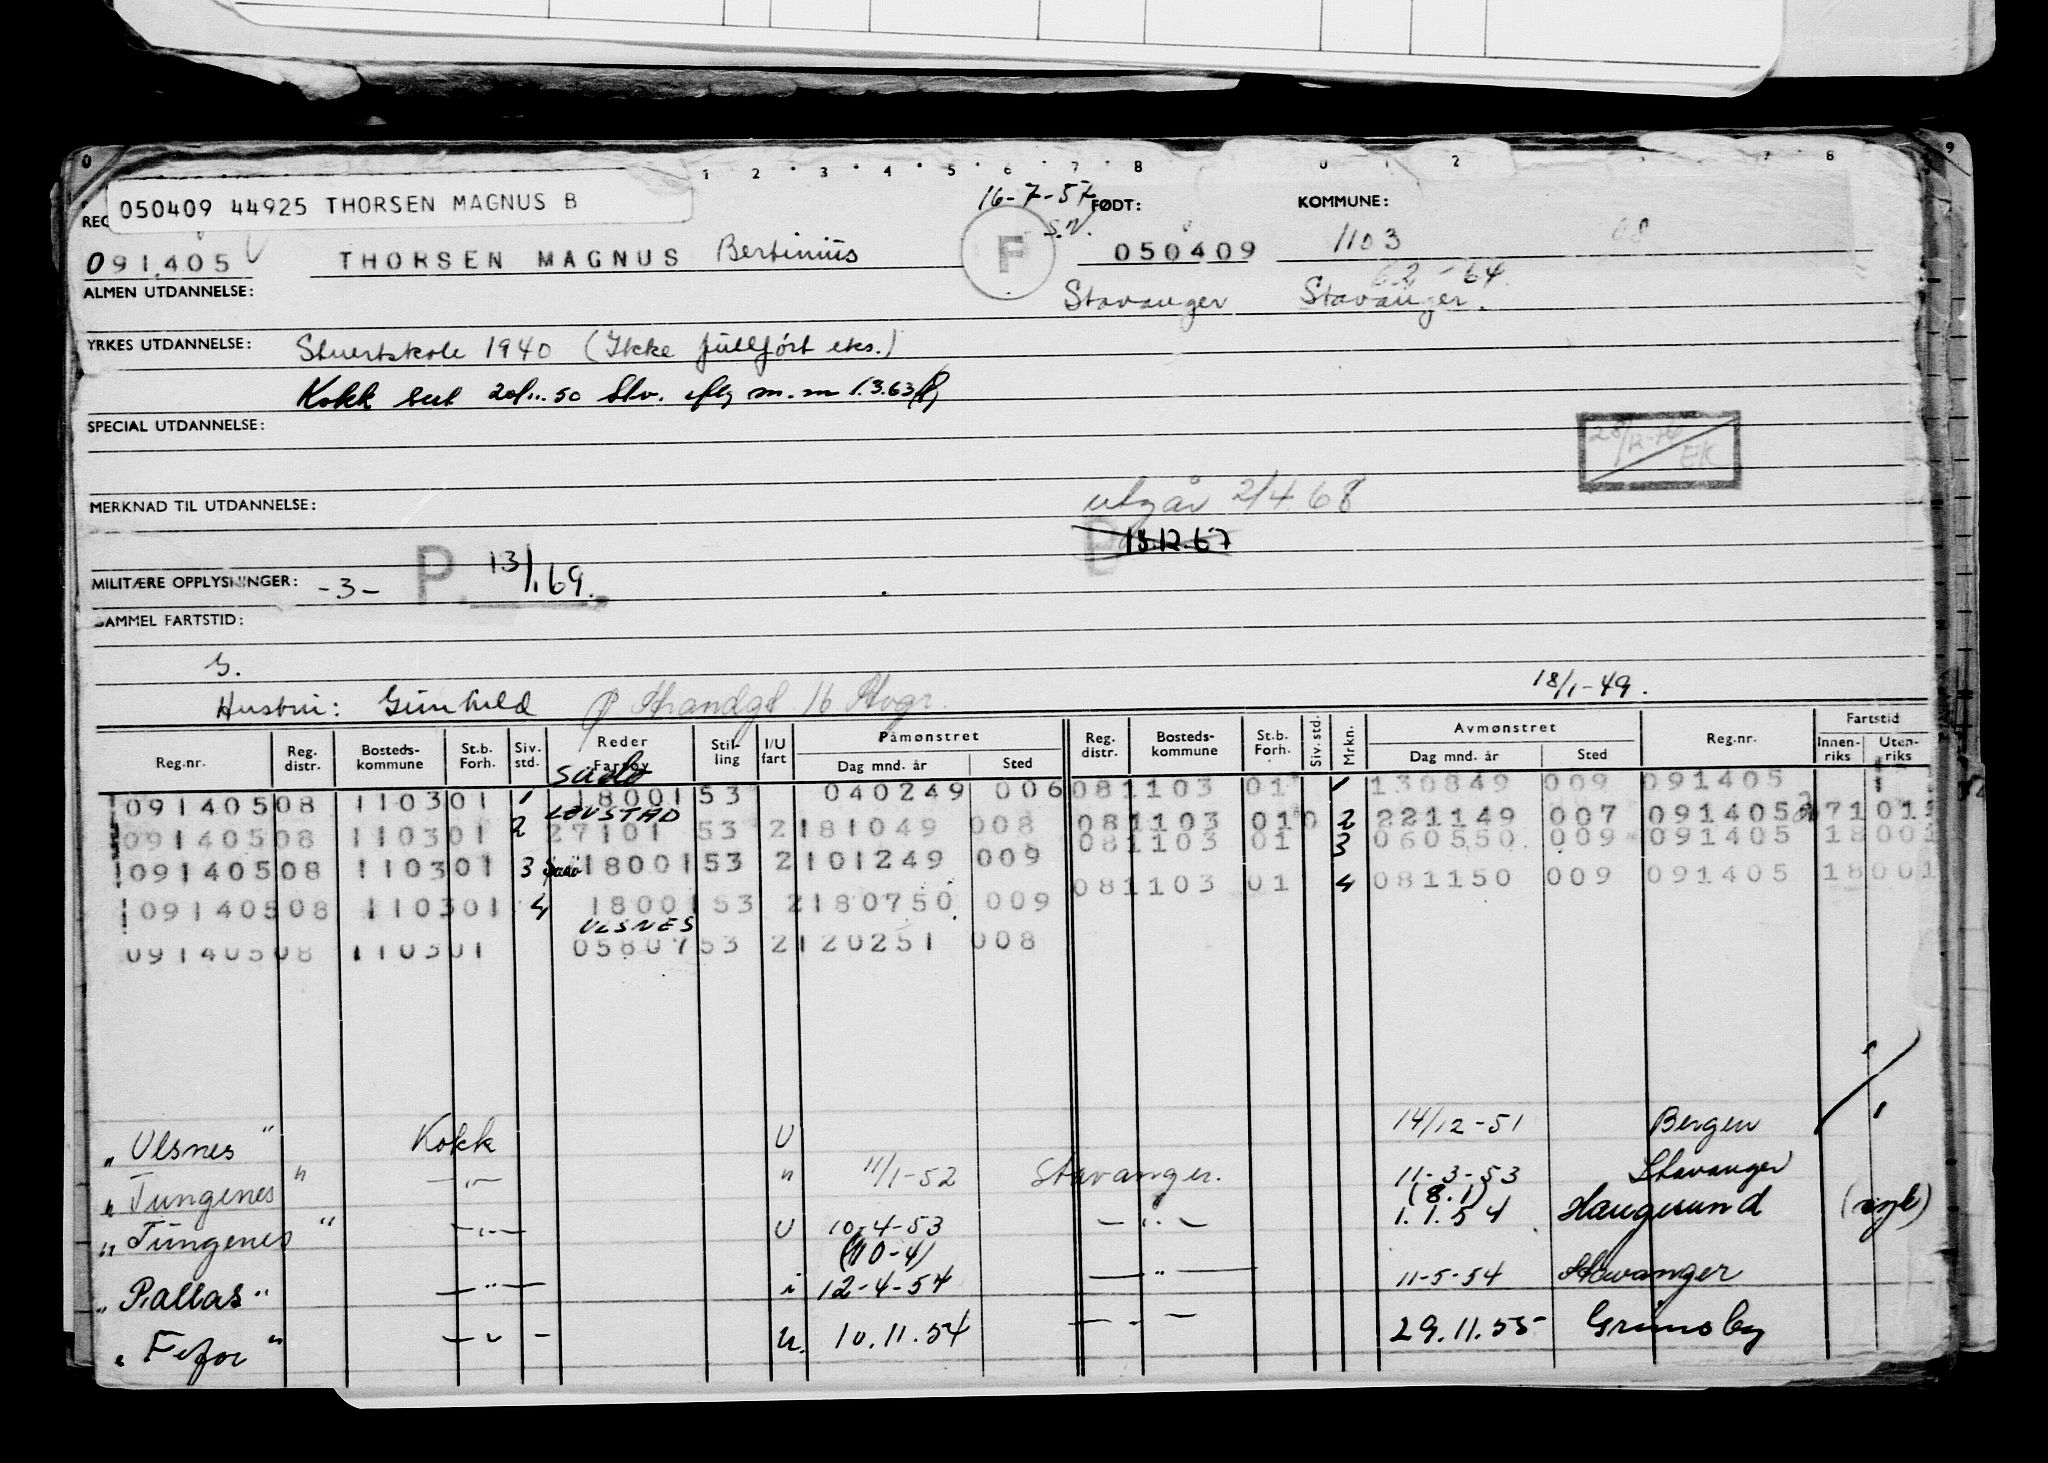 050409 44925 THORSEN MAGNUS B
16-7-57
S.V.
FØDT:
KOMMUNE:
091405
THORSEN MAGNUS Bertinius
F
050409
1103
08
62-64
ALMEN UTDANNELSE:
Stavanger
Stavanger.
YRKES UTDANNELSE:
Stuertskole 1940 (Ikke fullført eks.)
Kokk
50 Stv.
m.m 1.3.63
SPECIAL UTDANNELSE:
EK
MERKNAD TIL UTDANNELSE:
utgår 2/4 68
18.12.67
MILITÆRE OPPLYSNINGER: -3- P. 13/1.69.
SAMMEL FARTSTID:
3.
18/1-49.
Hustru: Gunhild
Strandgt 16 Stvgr.
Reg.nr. Reg. distr. Bosteds-kommune St.b. Forh. Siv. std. Reder Fartøy Stil-ling I/U fart Påmønstret Dag mnd. år Sted Reg. distr. Bosteds-kommune St.b. Forh. Siv. std. Mrkn. Avmønstret Dag mnd. år Sted Reg.nr. Fartstid Innen-riks Uten-riks
091405 08 1103 01 1 18001 53 040249 006 08 1103 01 1 130849 009 091405
LØVSTAD
091405 08 1103 01 2 27101 53 2 181049 008 08 1103 01 2 221149 007 091405 27101
091405 08 1103 01 3 18001 53 2 101249 009 08 1103 01 3 060550 009 091405 18001
091405 08 1103 01 4 18001 53 2 180750 009 08 1103 01 4 081150 009 091405 18001
ULSNES
091405 08 1103 01 05807 53 2 120251 008
"Ulsnes" Kokk U 14/12-51 Bergen
"Tungenes" -"- " 11/1-52 Stavanger. 11-3-53 Stavanger
(8.1)
"Tungenes" -"- U 10-4-53 -"- 1.1.54 Haugesund
(10-4)
"Pallas" -"- i 12-4-54 -"- 11-5-54 Stavanger
"Fefor" -"- U. 10.11.54 -"- 29.11.55 Grimsby